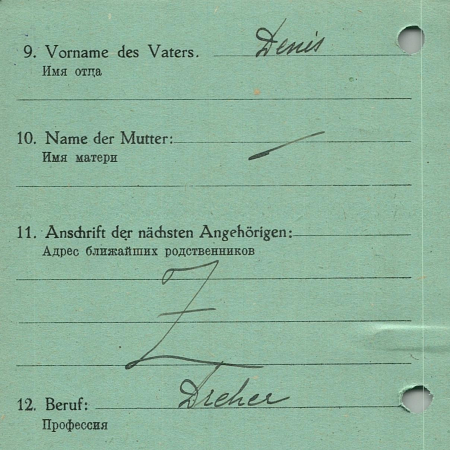 9. Vorname des Vaters. Denis
Имя отца
10. Name der Mutter: —
Имя матери
11. Anschrift der nächsten Angehörigen:
Адрес ближайших родственников
12. Beruf: Dreher
Профессия